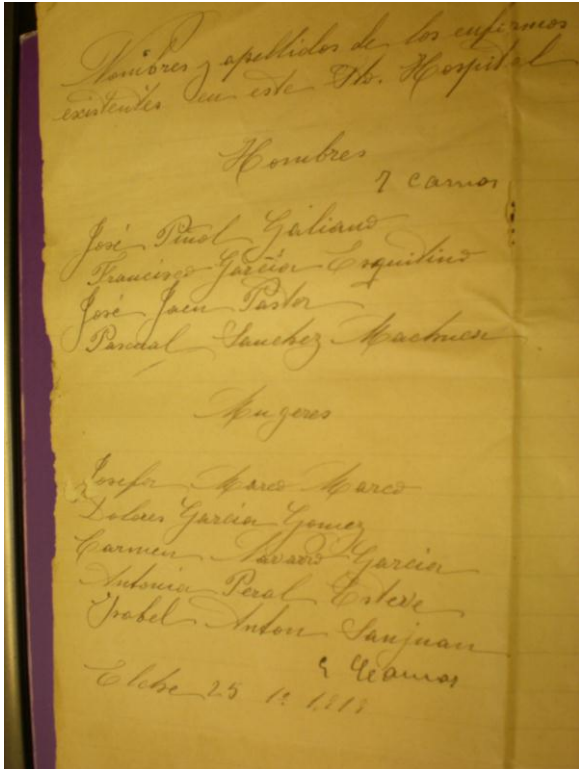 Nombres y apellidos de los enfermos
existentes en este Sto. Hospital
Hombres
7 camas
José Piñol Galiano
Francisco García Esquitino
José Jaen Pastor
Pascual Sanchez Machuca
Mugeres
Josefa Marco Marco
Dolores García Gomez
Carmen Navarro García
Antonia Peral Esteve
Ysabel Anton Sanjuan
camas
Elche 25